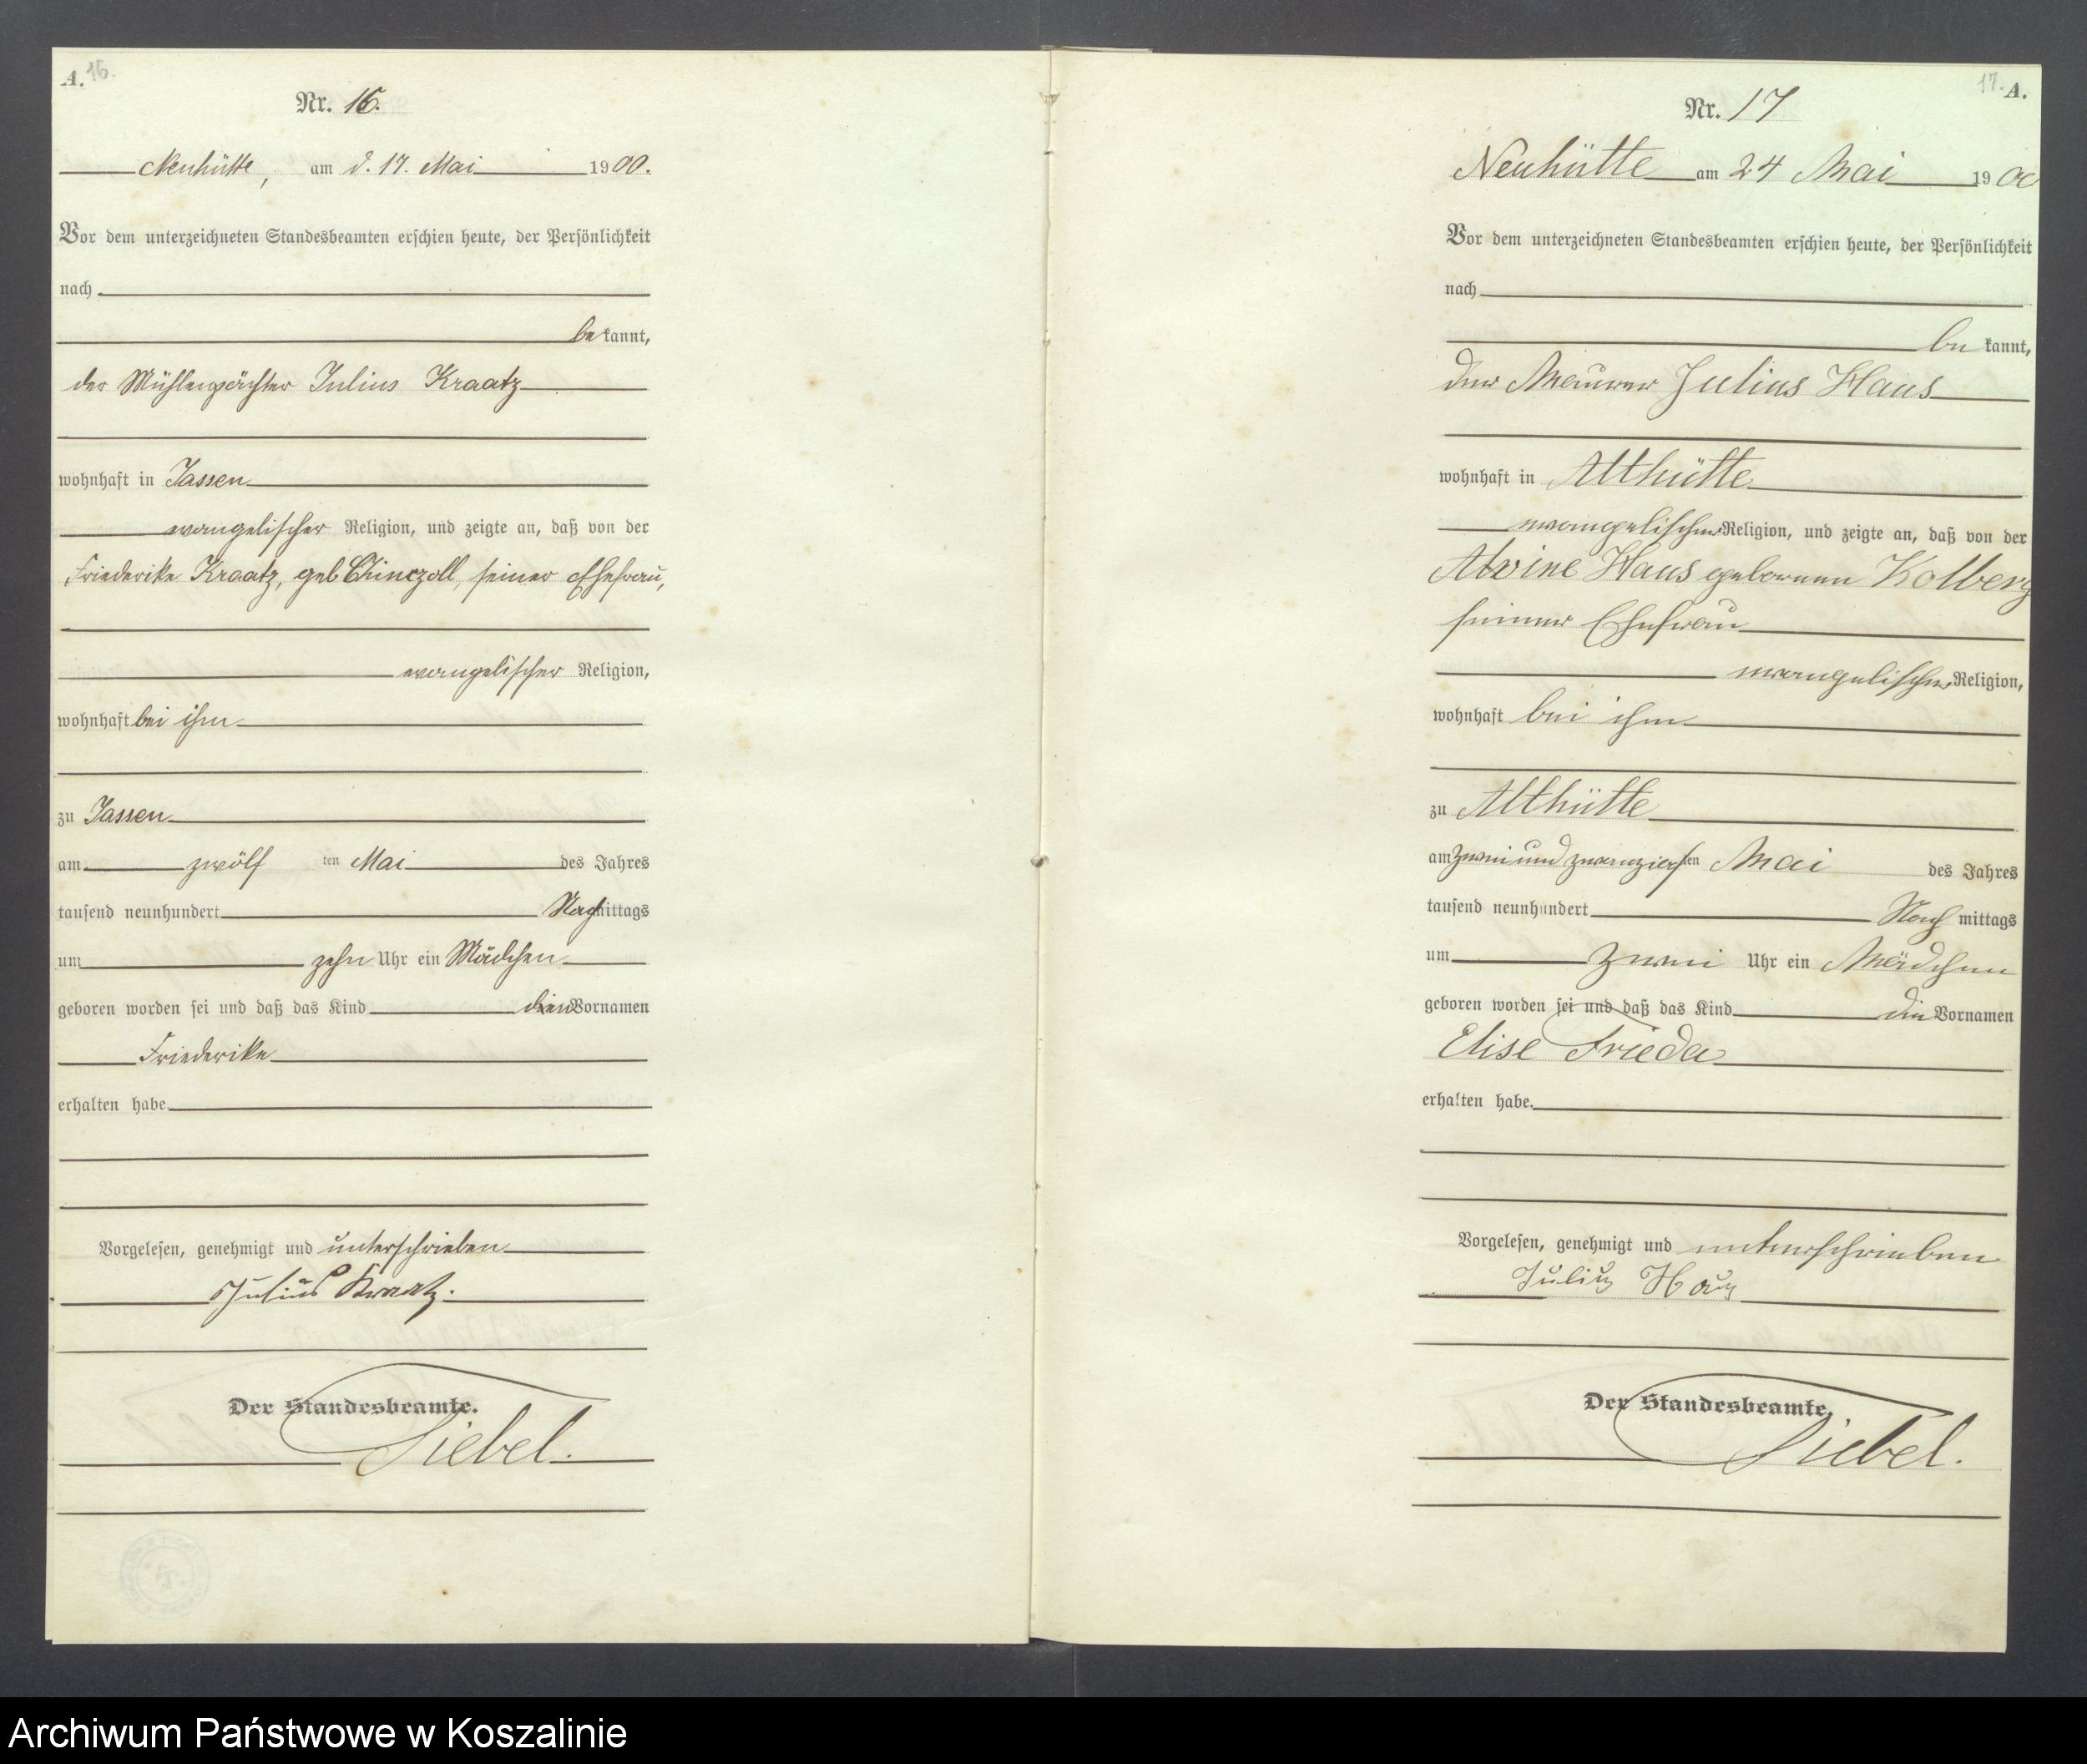 A. 16.
Nr. 16.
Neuhütte, am d. 17. Mai 1900.
Vor dem unterzeichneten Standesbeamten erschien heute, der Persönlichkeit
nach
bekannt,
der Mühlenpächter Julius Kraatz
wohnhaft in Jassen
evangelischer Religion, und zeigte an, daß von der
Friederike Kraatz, geb. seiner Ehefrau,
evangelischer Religion,
wohnhaft bei ihm
zu Jassen
am zwölf ten Mai des Jahres
tausend neunhundert Nachmittags
um zehn Uhr ein Mädchen
geboren worden sei und daß das Kind den Vornamen
Friederike
erhalten habe
Vorgelesen, genehmigt und unterschrieben
Julius Kraatz.
Der Standesbeamte.
Siebel.
17. A.
Nr. 17
Neuhütte am 24 Mai 1900
Vor dem unterzeichneten Standesbeamten erschien heute, der Persönlichkeit
nach
be kannt,
der Maurer Julius Haus
wohnhaft in Althütte
evangelischer Religion, und zeigte an, daß von der
Alvine Haus geborenen Kolberg
seiner Ehefrau
evangelischer Religion,
wohnhaft bei ihm
zu Althütte
am zwei und zwanzigsten Mai des Jahres
tausend neunhundert Nach mittags
um zwei Uhr ein Mädchen
geboren worden sei und daß das Kind die Vornamen
Elise Frieda
erhalten habe.
Vorgelesen, genehmigt und unterschrieben
Julius Haus
Der Standesbeamte.
Siebel.
Archiwum Państwowe w Koszalinie